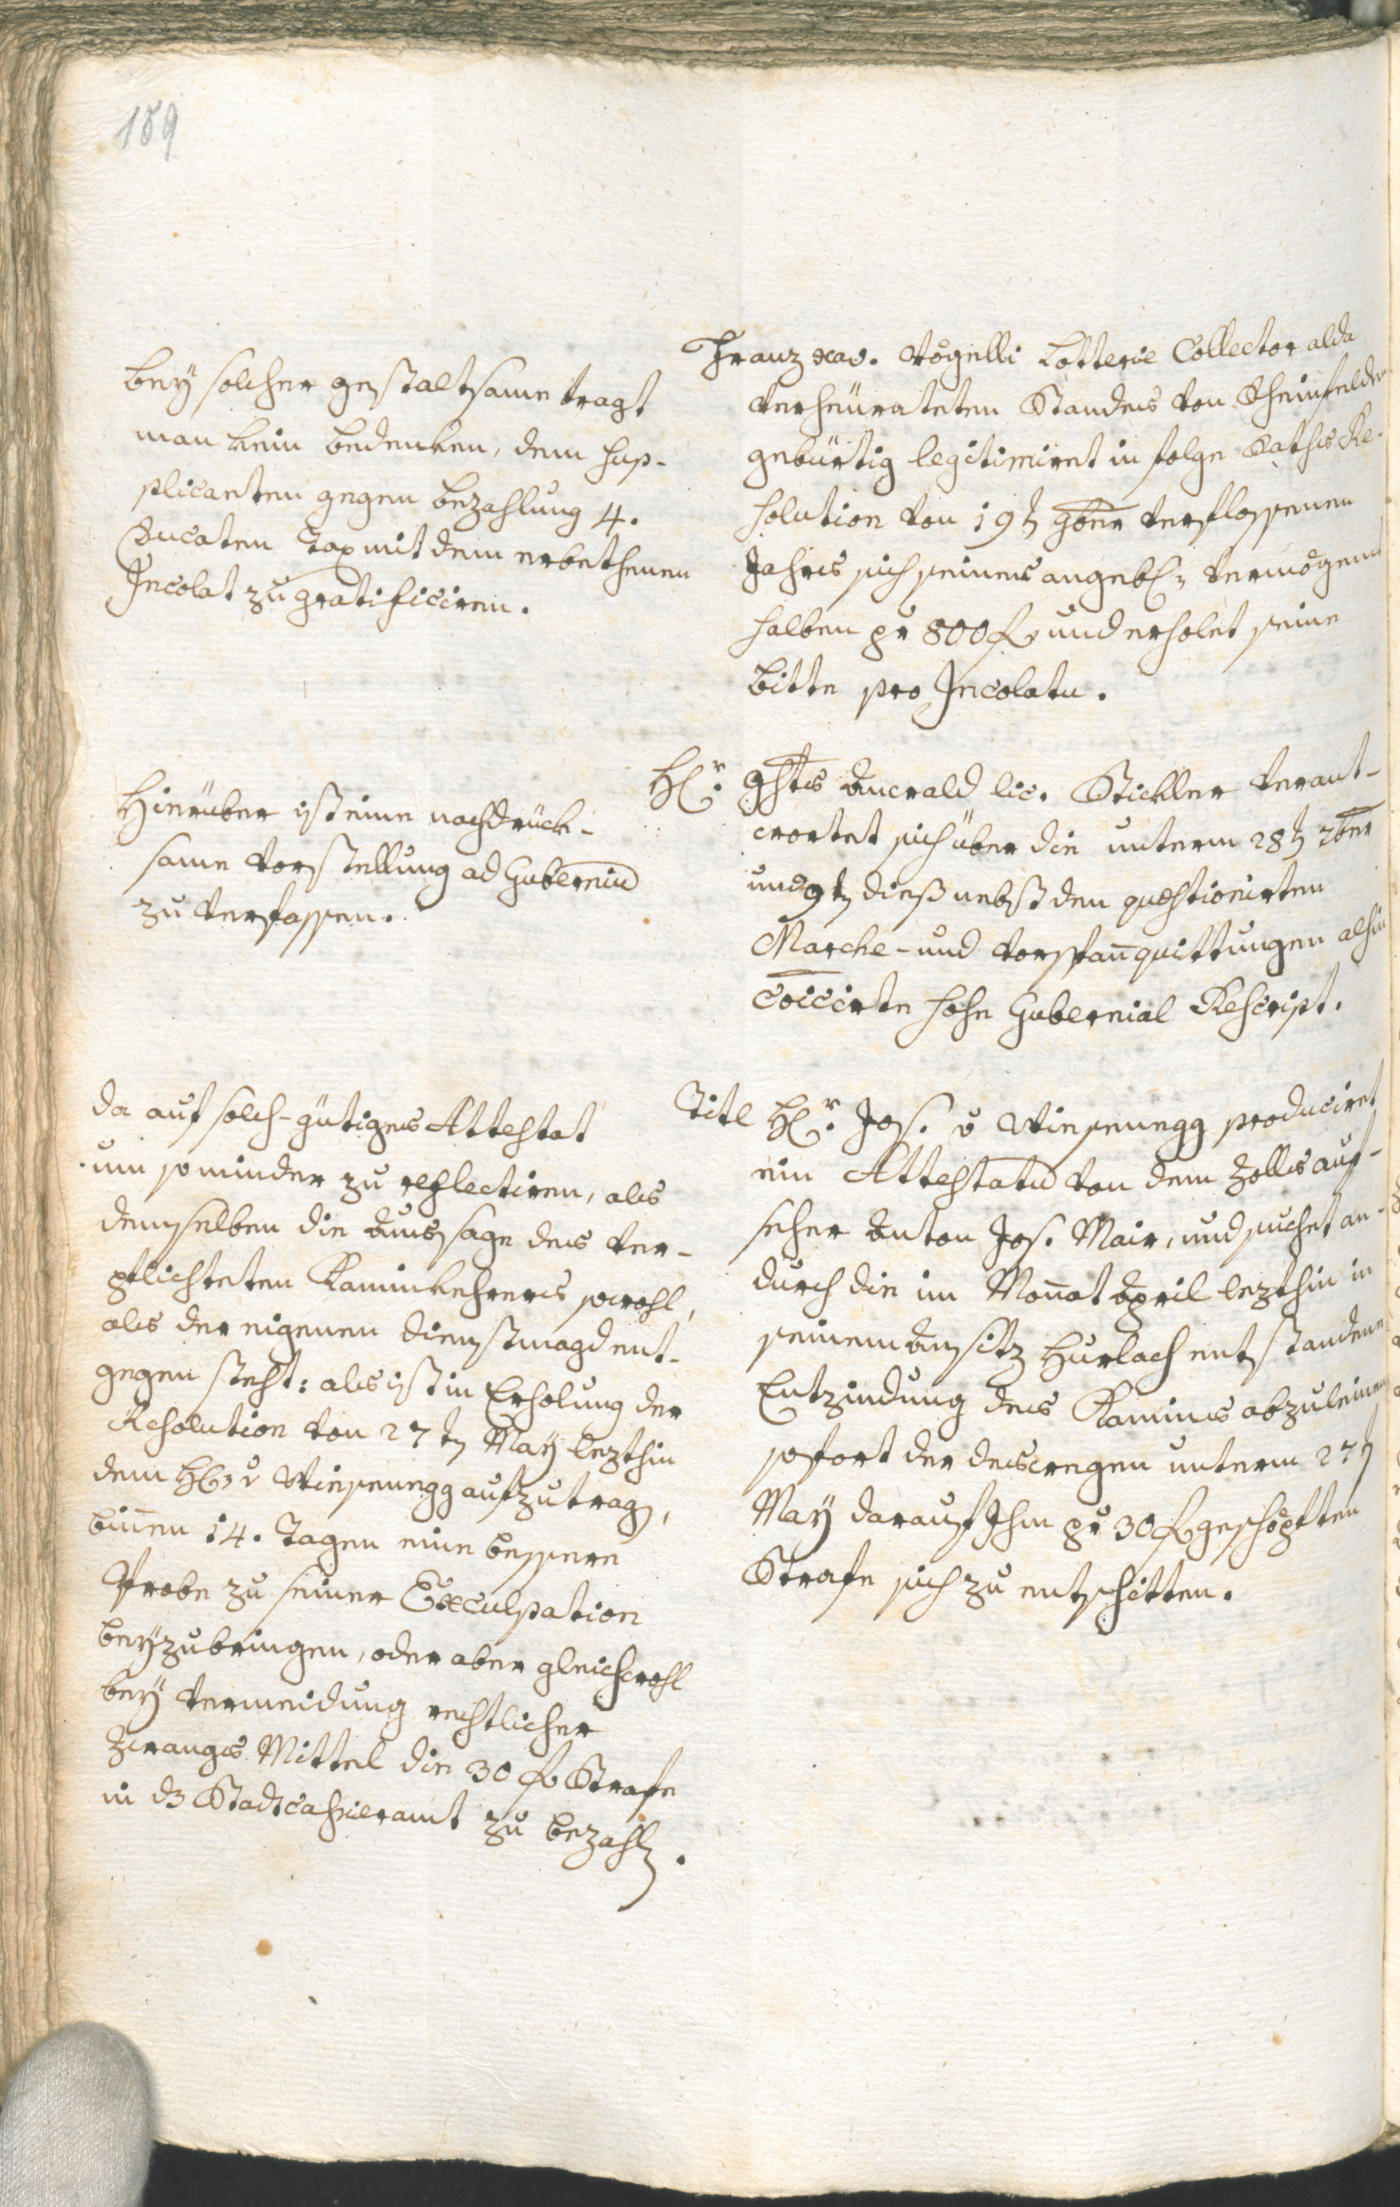 189
Franz Xav. Vögelli Lotterie Collector alda
verheürateten Standes von Rheinfelden
gebürtig legitimiret in folge Raths Re-
solution von 19t 9ber verflossenen
Jahres sich seines angebl: Vermögens
halben pr 800 f und erholet seine
bitte pro Incolatu.
bey solcher gestaltsame tragt
man kein bedenken, dem sup-
plicanten gegen bezahlung 4.
Ducaten Tax mit dem erbethenen
Incolat zu gratificiren.
Hr. ghts Anwald lic. Stickler verant-
wortet sich über die unterm 28t 7ber
und 9t dieß nebst den quæstionirten
Marche- und vorspañquittungen alhin
co͠icirte hohe Gubernial Rescript.
Hierüber ist eine nachdrück-
same vorstellung ad Guberniu͠
zu verfassen.
Titl Hr. Jos. v Wiesenegg produciret
ein Attestatu͠ von dem Zollsauf-
seher Anton Jos. Mair, und suchet an-
durch die im Monat April lezthin in
seinem Ansitz Hurlach entstandene
Entzindung des Kamins abzuleinen
sofort der deswegen unterm 27t
May darauf Ihm pr 30 f geschöpften
Strafe sich zu entschitten.
da auf solch-gütiges Attestat
um so minder zu reflectiren, als
demselben die Aussage des ver-
pflichteten Kaminkehrers sowohl,
als der eigenen dienstmagd ent-
gegen steht: als ist in Erholung der
Resolution von 27t May lezthin
dem H: v Wiesenegg aufzutrag,
biñen 14. Tagen eine bessere
Probe zu seiner Exculpation
beyzubringen, oder aber gleichwohl
bey vermeidung rechtlicher
Zwangs Mittel die 30 f Strafe
in dz Stadtcassieramt zu bezahlen.